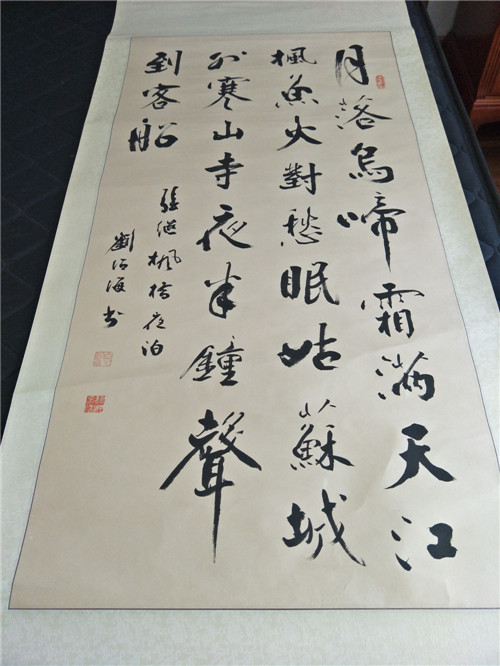 月落烏啼霜滿天江
楓魚火對愁眠姑蘇城
外寒山寺夜半鐘聲
到客船
張继楓橋夜泊
劉海书